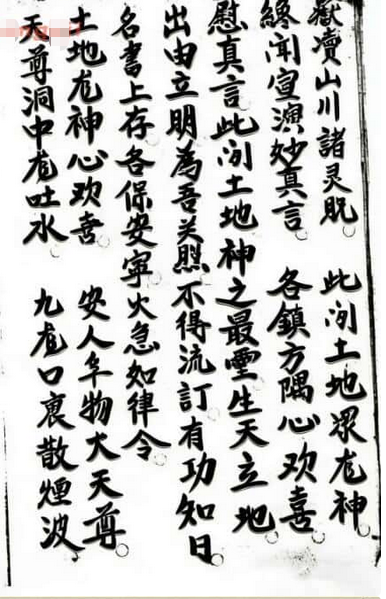 嶽瀆山川諸灵贶 此间土地眾龙神
終闻宣演妙真言 各鎮方隅心欢喜
慰真言此间土地神之最靈生天立地
出由立明為吾关照不得流訂有功知日
名書上存各保安寧火急如律令
土地龙神心欢喜 安人阜物大天尊
天尊洞中龙吐水 九龙口裏散煙波